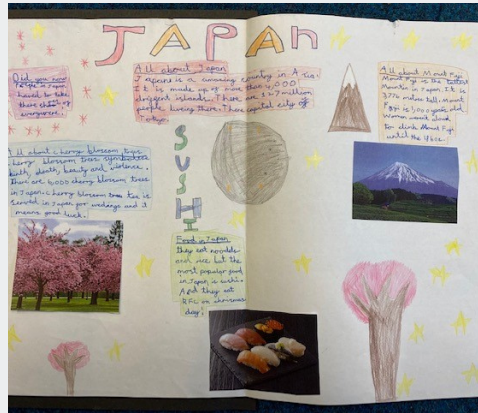 JAPAN
Did you now
People in Japan
have to take
there shoes of
everywhere.
All about Japan
Japan is a amazing country in Asia.
It is made up of more than 4,000
different islands. There are 127 million
people living there. There capital city is
Tokyo.
All about Mount Fuji
Mount Fuji is the tallest
Mountin in Japan. It is
3776 meters tall. Mount
Fuji is years old.
Women weren't allowed
to climb Mount Fuji
until the
All about cherry blossom trees
cherry blossom trees
birth, death, beauty and violence.
There are cherry blossom trees
in Japan. Cherry blossom tree tea is
served in Japan for wedings and it
means good luck.
SUSHI
Food in Japan
they eat noodles
and rice but the
most popular food
in Japan is sushi.
And they eat
KFC on chrismas
day!